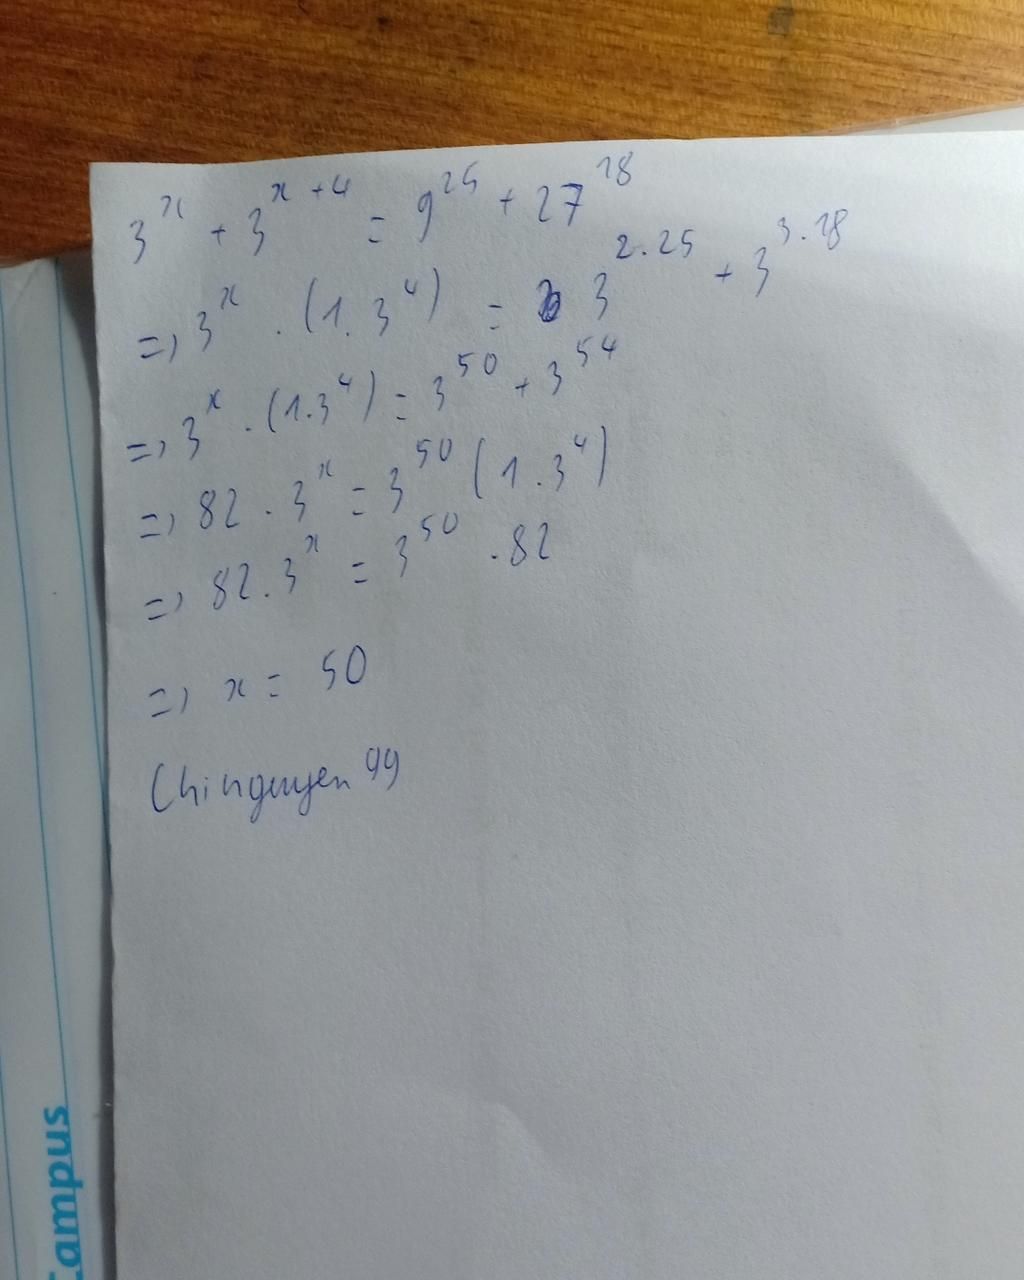 3^x + 3^{x+4} = 9^{25} + 27^{18}
=> 3^x . (1.3^4) = 3^{2.25} + 3^{3.18}
=> 3^x . (1.3^4) = 3^{50} + 3^{54}
=> 82 . 3^x = 3^{50} (1.3^4)
=> 82.3^x = 3^{50} .82
=> x = 50
Chinguyen99
Campus